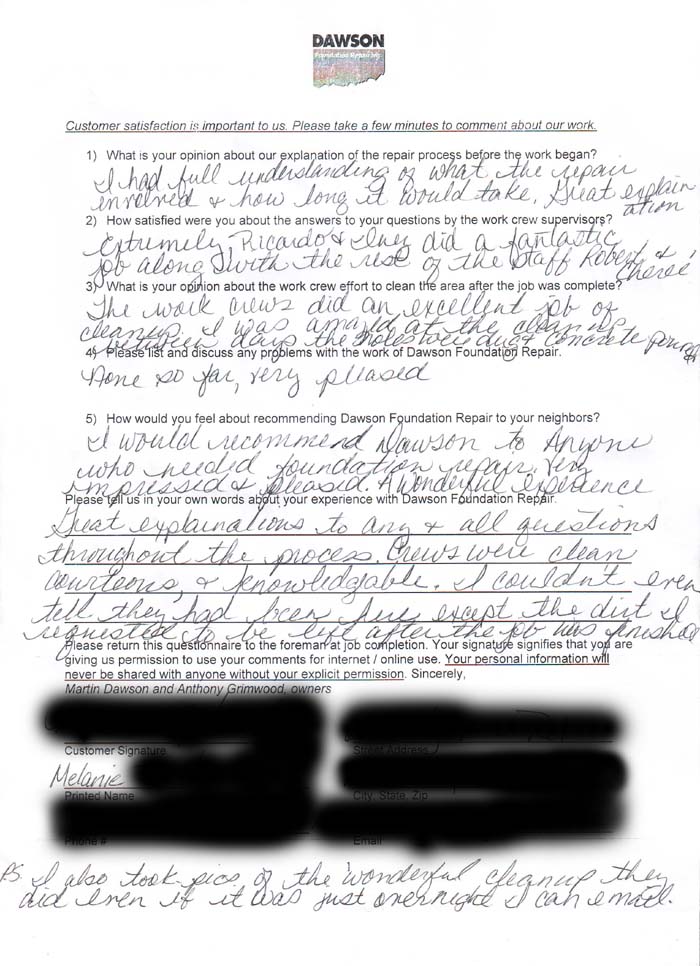 DAWSON
Foundation Repair Inc.
Customer satisfaction is important to us. Please take a few minutes to comment about our work.
1) What is your opinion about our explanation of the repair process before the work began?
I had full understanding of what the repair
envolved & how long it would take. Great explain
ation
2) How satisfied were you about the answers to your questions by the work crew supervisors?
Extremely, Ricardo & did a fantastic
job along with the rest of the staff Robert &
3) What is your opinion about the work crew effort to clean the area after the job was complete?
The work crews did an excellent job of
cleanup. I was amazed at the cleanup
between days the holes were dug & concrete poured
4) Please list and discuss any problems with the work of Dawson Foundation Repair.
None so far, very pleased
5) How would you feel about recommending Dawson Foundation Repair to your neighbors?
I would recommend Dawson to Anyone
who needed foundation repair. Very
impressed & pleased. A wonderful experience
Please tell us in your own words about your experience with Dawson Foundation Repair.
Great explainations to any & all questions
throughout the process. Crews were clean
courteous, & knowledgable. I couldn't even
tell they had been here except the dirt I
requested to be left after the job was finished
Please return this questionnaire to the foreman at job completion. Your signature signifies that you are
giving us permission to use your comments for internet / online use. Your personal information will
never be shared with anyone without your explicit permission. Sincerely,
Martin Dawson and Anthony Grimwood, owners
Customer Signature
Street Address
Melanie
Printed Name
City, State, Zip
Phone #
Email
PS. I also took pics of the wonderful cleanup they
did even if it was just overnight I can email.